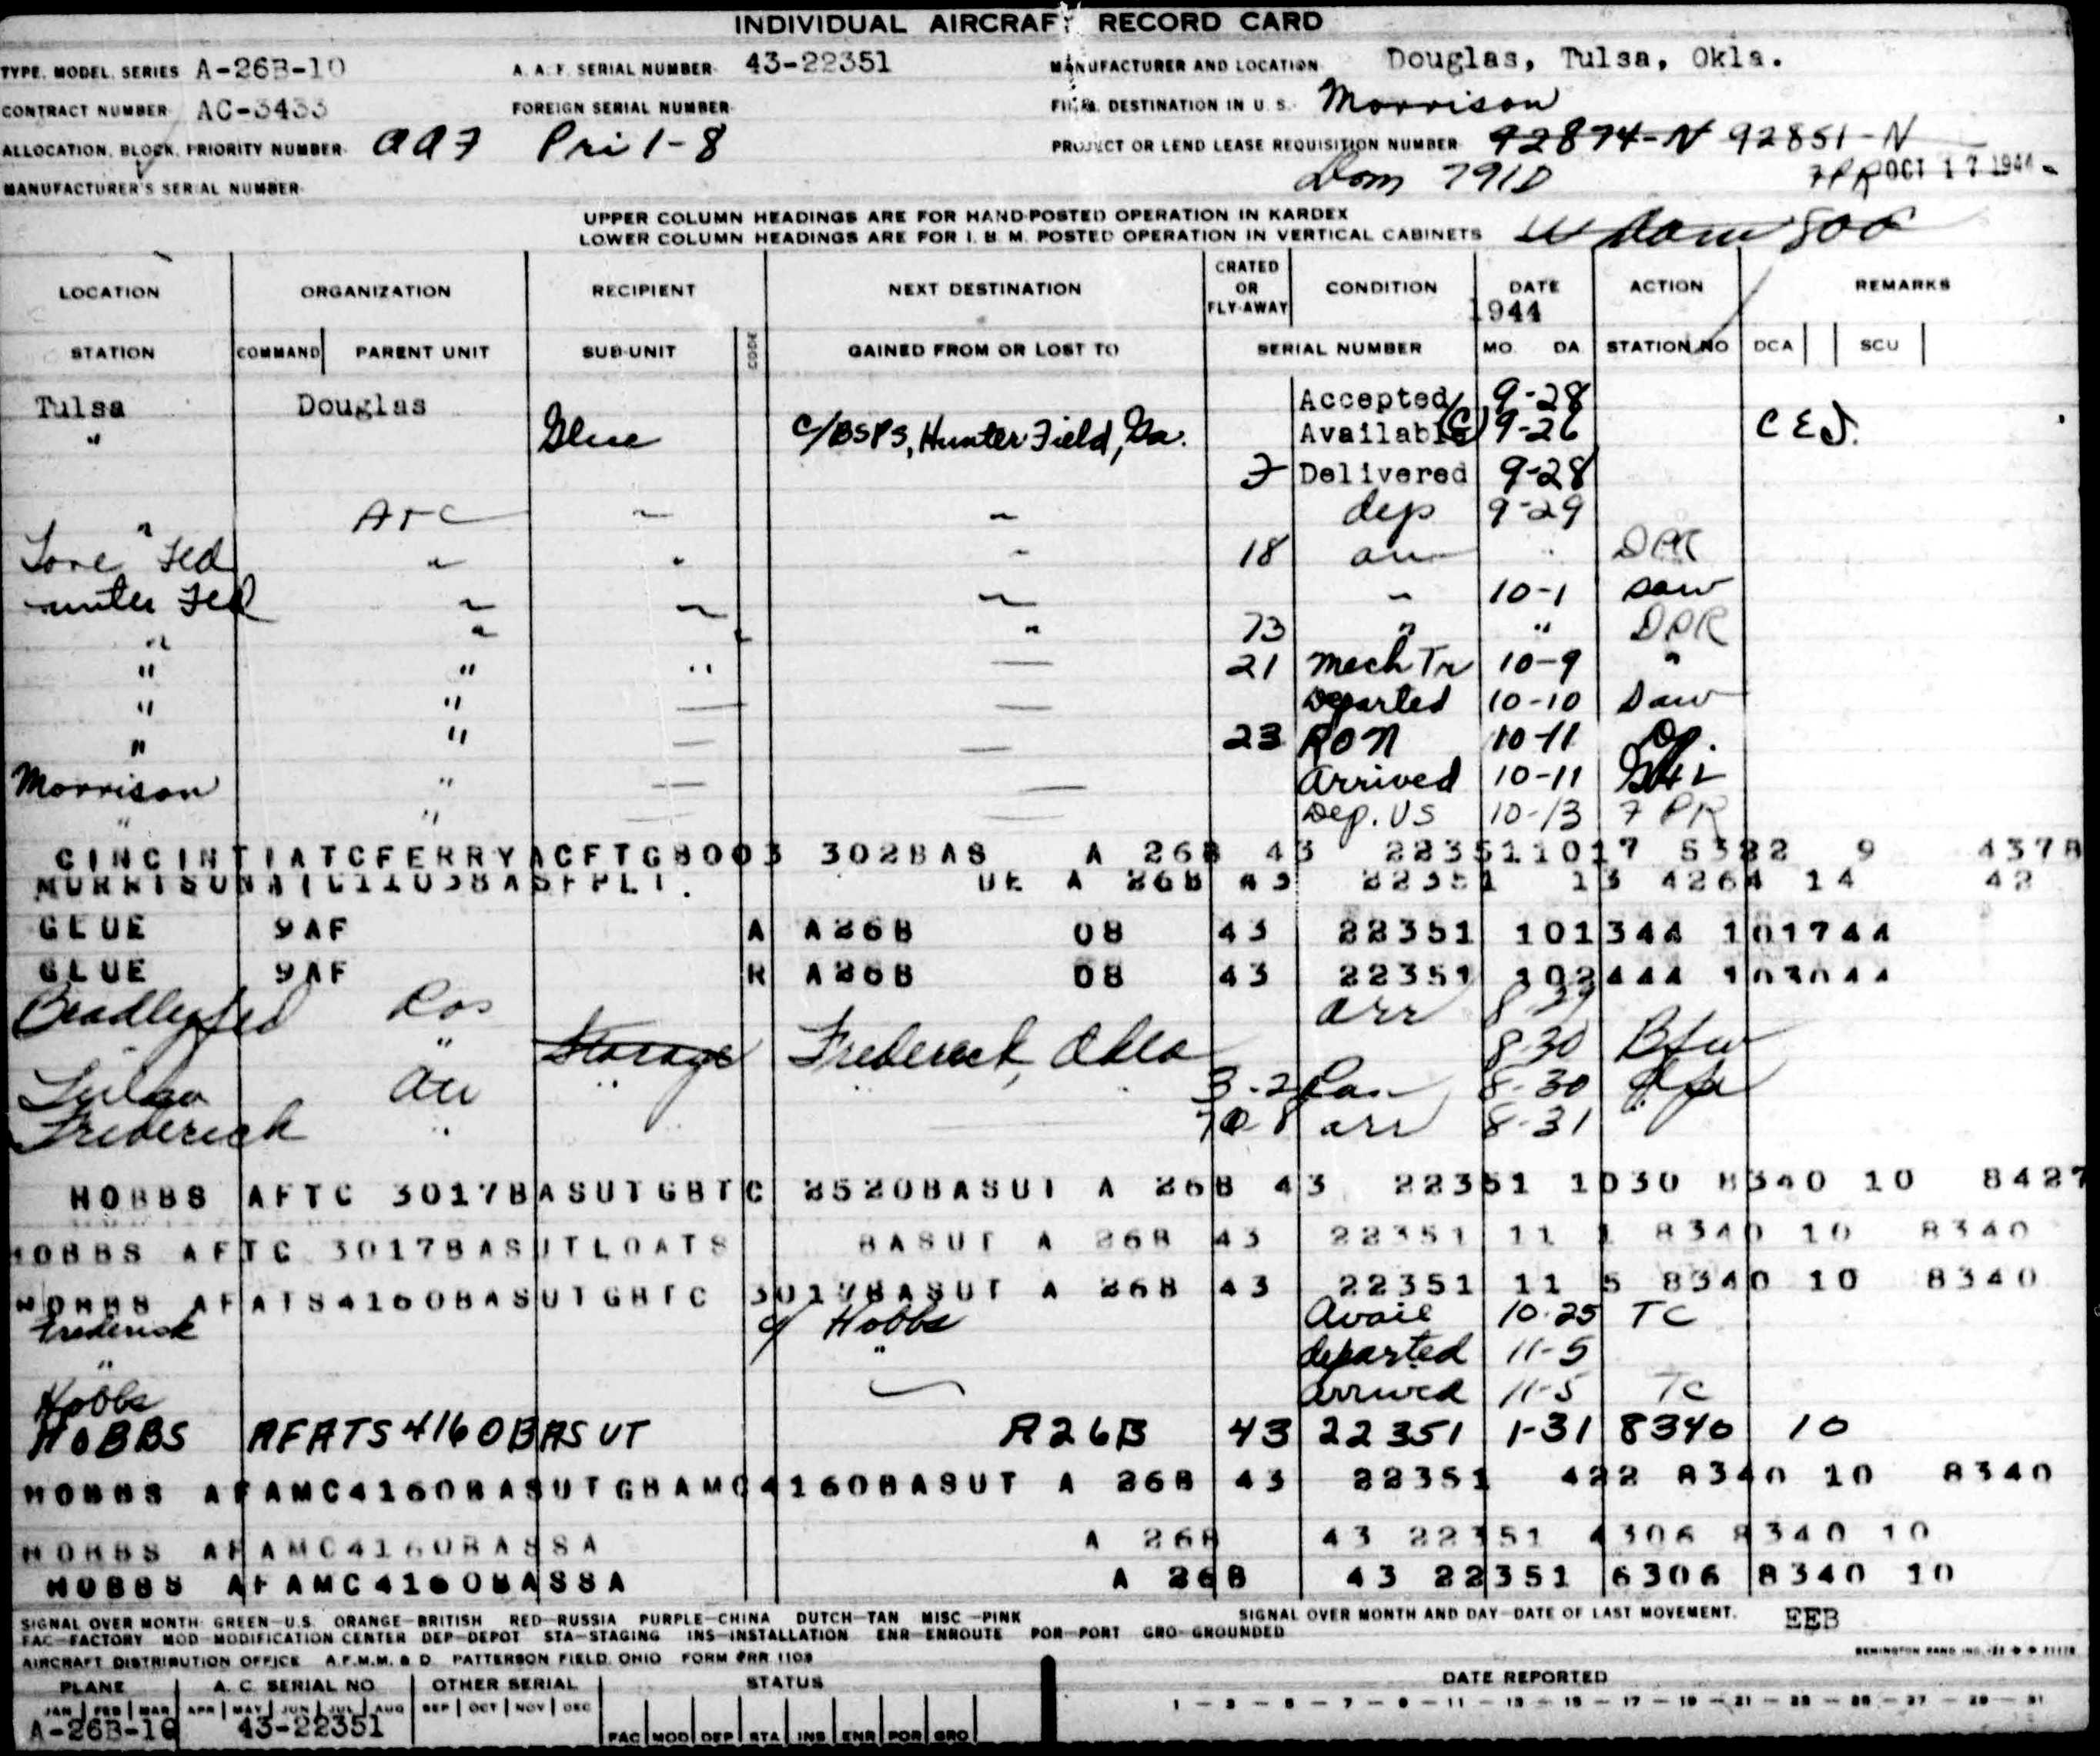 INDIVIDUAL AIRCRAFT RECORD CARD
TYPE, MODEL, SERIES A-26B-10 A. A. F. SERIAL NUMBER 43-22351 MANUFACTURER AND LOCATION Douglas, Tulsa, Okla.
CONTRACT NUMBER AC-3433 FOREIGN SERIAL NUMBER DESTINATION IN U. S. Morrison
ALLOCATION, BLOCK, PRIORITY NUMBER aaf Pri 1-8 PROJECT OR LEND LEASE REQUISITION NUMBER 92874-N 92851-N
MANUFACTURER'S SERIAL NUMBER Dom 791D 7PR OCT 17 1944
UPPER COLUMN HEADINGS ARE FOR HAND-POSTED OPERATION IN KARDEX
LOWER COLUMN HEADINGS ARE FOR I. B. M. POSTED OPERATION IN VERTICAL CABINETS
LOCATION ORGANIZATION RECIPIENT NEXT DESTINATION CRATED OR FLY-AWAY CONDITION DATE ACTION REMARKS
1944
STATION COMMAND PARENT UNIT SUB-UNIT CODE GAINED FROM OR LOST TO SERIAL NUMBER MO. DA. STATION NO DCA SCU
Tulsa Douglas Accepted 9-28
" Glue c/BSPS, Hunter Field, Ga. Available (C) 9-26 C E J.
7 Delivered 9-28
" ATC " " dep 9-29
Love Fld " " " 18 arr " DPR
unter Fld " " " " 10-1 saw
" " " 73 " " DPR
" " " — 21 mech Tr 10-9 "
" " — — Departed 10-10 Saw
" " — — 23 RON 10-11
Morrison " — — Arrived 10-11
" " — — Dep. US 10-13 7 PR
CINCINTIATCFERRYACFTGB003 302BAS A 26B 43 223511017 5322 9 4378
A 26B 43 22351 13 4264 14 42
GLUE 9AF A A26B 08 43 22351 101344 101744
GLUE 9AF R A26B 08 43 22351 102444 103044
Bradley fld arr 8-29
" Storage Frederick, Okla 8-30
Tulsa " 8-30
Frederick " arr 8-31
HOBBS AFTC 3017BASUTGBTC 2520BASUT A 26B 43 22351 1030 8340 10 8427
HOBBS AFTC 3017BASUTLOATS BASUT A 26B 43 22351 11 1 8340 10 8340
HOBBS AFATS4160BASUTGBTC 3017BASUT A 26B 43 22351 11 5 8340 10 8340
Frederick c/ Hobbs Avail 10-25 TC
" " departed 11-5
Hobbs arrived 11-5 TC
HOBBS AFATS 4160BASUT A26B 43 22351 1-31 8340 10
HOBBS AFAMC4160BASUTGBAMC4160BASUT A 26B 43 22351 422 8340 10 8340
HOBBS AFAMC4160BASSA A 26B 43 22351 4306 8340 10
HOBBS AFAMC4160BASSA A 26B 43 22351 6306 8340 10
SIGNAL OVER MONTH: GREEN—U.S. ORANGE—BRITISH RED—RUSSIA PURPLE—CHINA DUTCH—TAN MISC—PINK SIGNAL OVER MONTH AND DAY—DATE OF LAST MOVEMENT. EEB
FAC—FACTORY MOD—MODIFICATION CENTER DEP—DEPOT STA—STAGING INS—INSTALLATION ENR—ENROUTE POR—PORT GRO—GROUNDED
AIRCRAFT DISTRIBUTION OFFICE A.F.M.M. & D. PATTERSON FIELD, OHIO FORM #RR 1108 REMINGTON RAND INC.
PLANE A. C. SERIAL NO. OTHER SERIAL STATUS DATE REPORTED
JAN FEB MAR APR MAY JUN JUL AUG SEP OCT NOV DEC 1—3—5—7—9—11—13—15—17—19—21—23—25—27—29—31
A-26B-10 43-22351
FAC MOD DEP STA INS ENR POR GRO